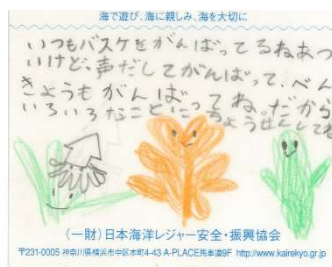 海で遊び、海に親しみ、海を大切に
いつもバスケをがんばってるねあつ
いけど、声だしてがんばって、べん
きょうもがんばってね。だから
いろいろなことに
(一財)日本海洋レジャー安全・振興協会
〒231-0005 神奈川県横浜市中区本町4-43 A-PLACE馬車道9F http://www.kairekyo.gr.jp